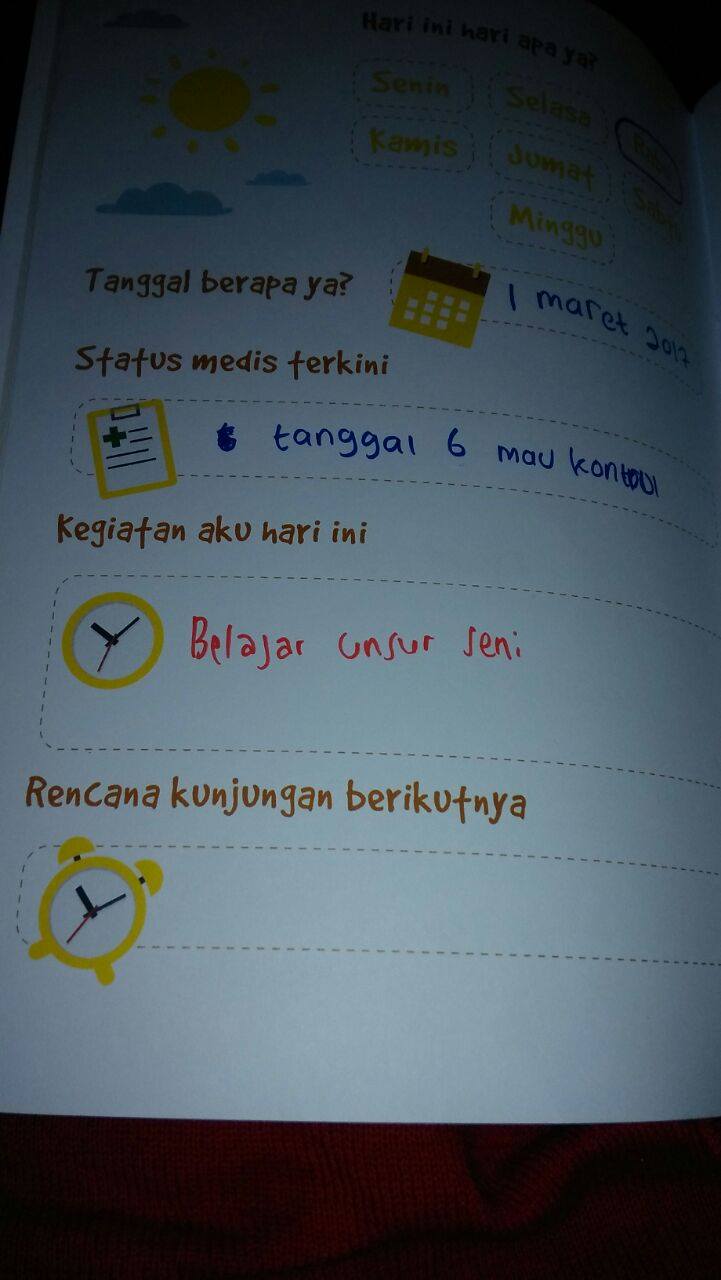 Hari ini hari apa ya?
Senin Selasa Rabu
Kamis Jumat Sabtu
Minggu
Tanggal berapa ya?
1 maret 2017
Status medis terkini
tanggal 6 mau kontrol
Kegiatan aku hari ini
Belajar unsur seni
Rencana kunjungan berikutnya